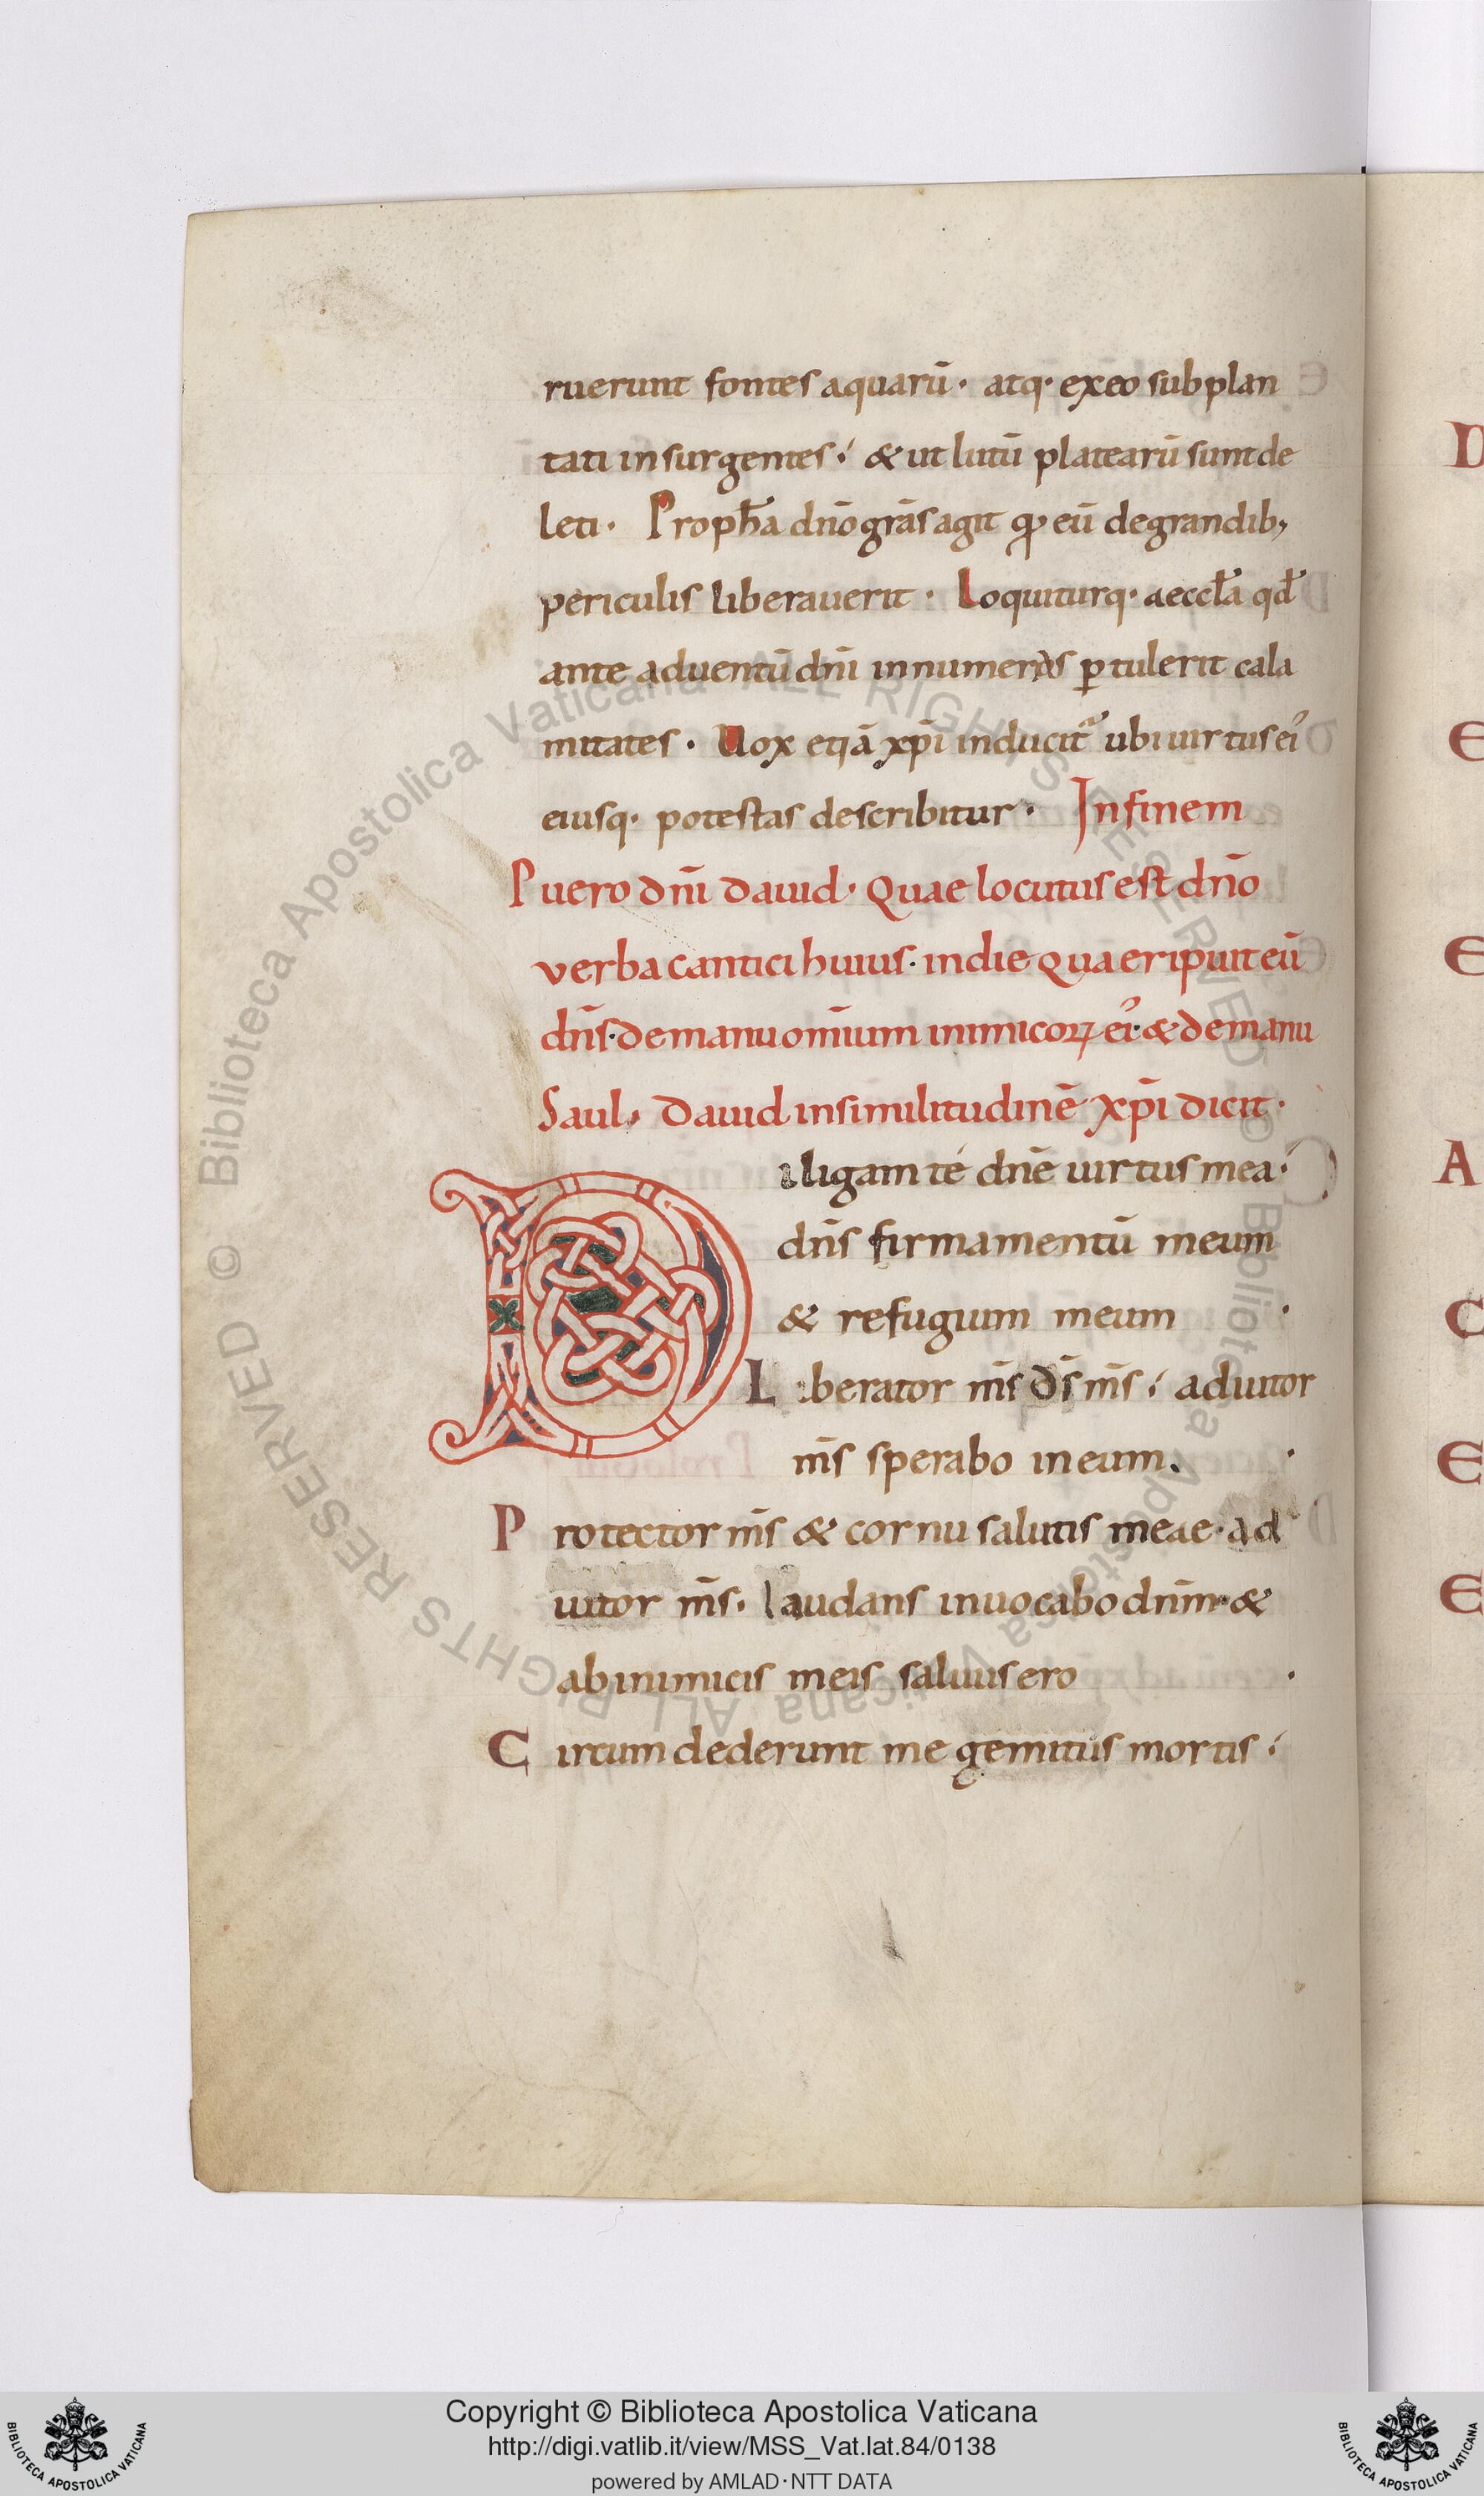 ruerunt fontes aquarū · atq· exeo subplan
tati insurgentes · & ut lutū platearū sunt de
leti · Proph̄a dn̄o grās agit qđ eū de grandib;
periculis liberauerit · Loquiturq· aeccl̄a qđ
ante aduentū dn̄i innumeras ꝑtulerit cala
mitates · Uox etiā xp̄i inducit᷑ ubi uirtus ei᾽
eiusq· potestas describitur · In finem
Puero dn̄i dauid · Quae locutus est dn̄o
verba cantici huius · in die qua eripuit eū
dn̄s · de manu om̄ium inimicoꝝ ei᾽ · & de manu
Saul · dauid in similitudinē xp̄i dicit ·
Diligam te dn̄e uirtus mea ·
dn̄s firmamentū meum
& refugium meum ·
Liberator m̄s d̄s m̄s · adiutor
m̄s sperabo in eum ·
Protector m̄s & cornu salutis meae · ad
iutor m̄s · laudans inuocabo dn̄m · &
ab inimicis meis saluus ero ·
Circumdederunt me gemitus mortis ·
D
E
E
A
C
E
E
© Biblioteca Apostolica Vaticana ALL RIGHTS RESERVED © Biblioteca Apostolica Vaticana ALL RIGHTS RESERVED
Copyright © Biblioteca Apostolica Vaticana
http://digi.vatlib.it/view/MSS_Vat.lat.84/0138
powered by AMLAD·NTT DATA
BIBLIOTECA APOSTOLICA VATICANA
BIBLIOTECA APOSTOLICA VATICANA